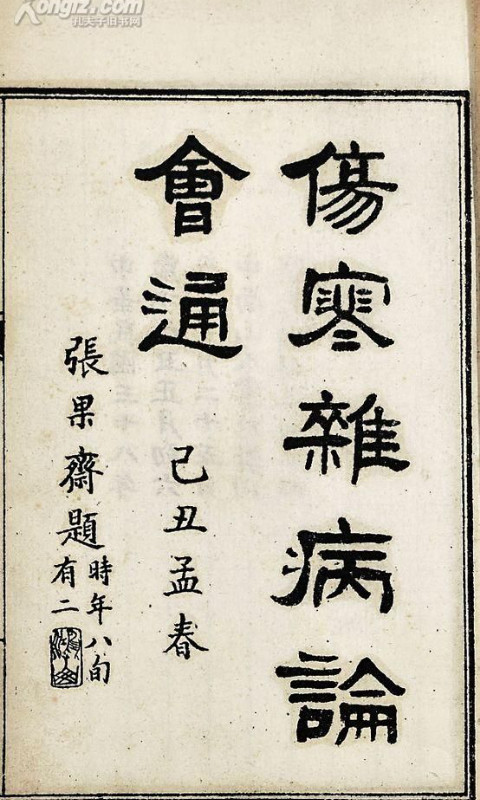 Kongfz.com
孔夫子旧书网
傷寒雜病論
會通
己丑孟春
張果齋題
時年八旬
有二